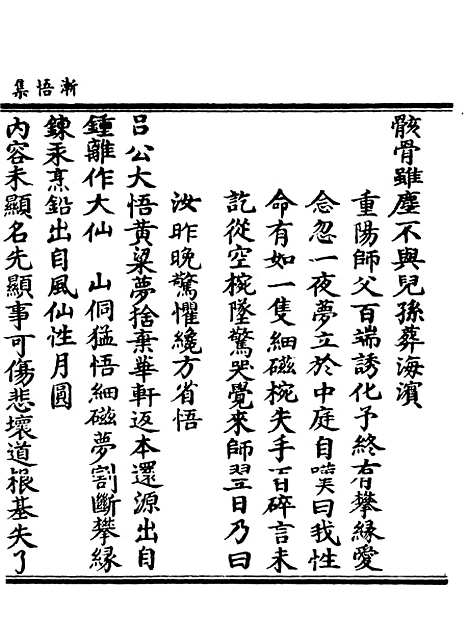 漸悟集
骸骨雖塵不與兒孫葬海濱
重陽師父百端誘化予終有攀緣愛
念忽一夜夢立於中庭自嘆曰我性
命有如一隻細磁椀失手百碎言未
訖從空椀墜驚哭覺來師翌日乃曰
汝昨晚驚懼纔方省悟
呂公大悟黃粱夢捨棄華軒返本還源出自
鍾離作大仙 山侗猛悟細磁夢割斷攀緣
鍊汞烹鉛出自風仙性月圓
內容未顯名先顯事可傷悲壞道根基失了